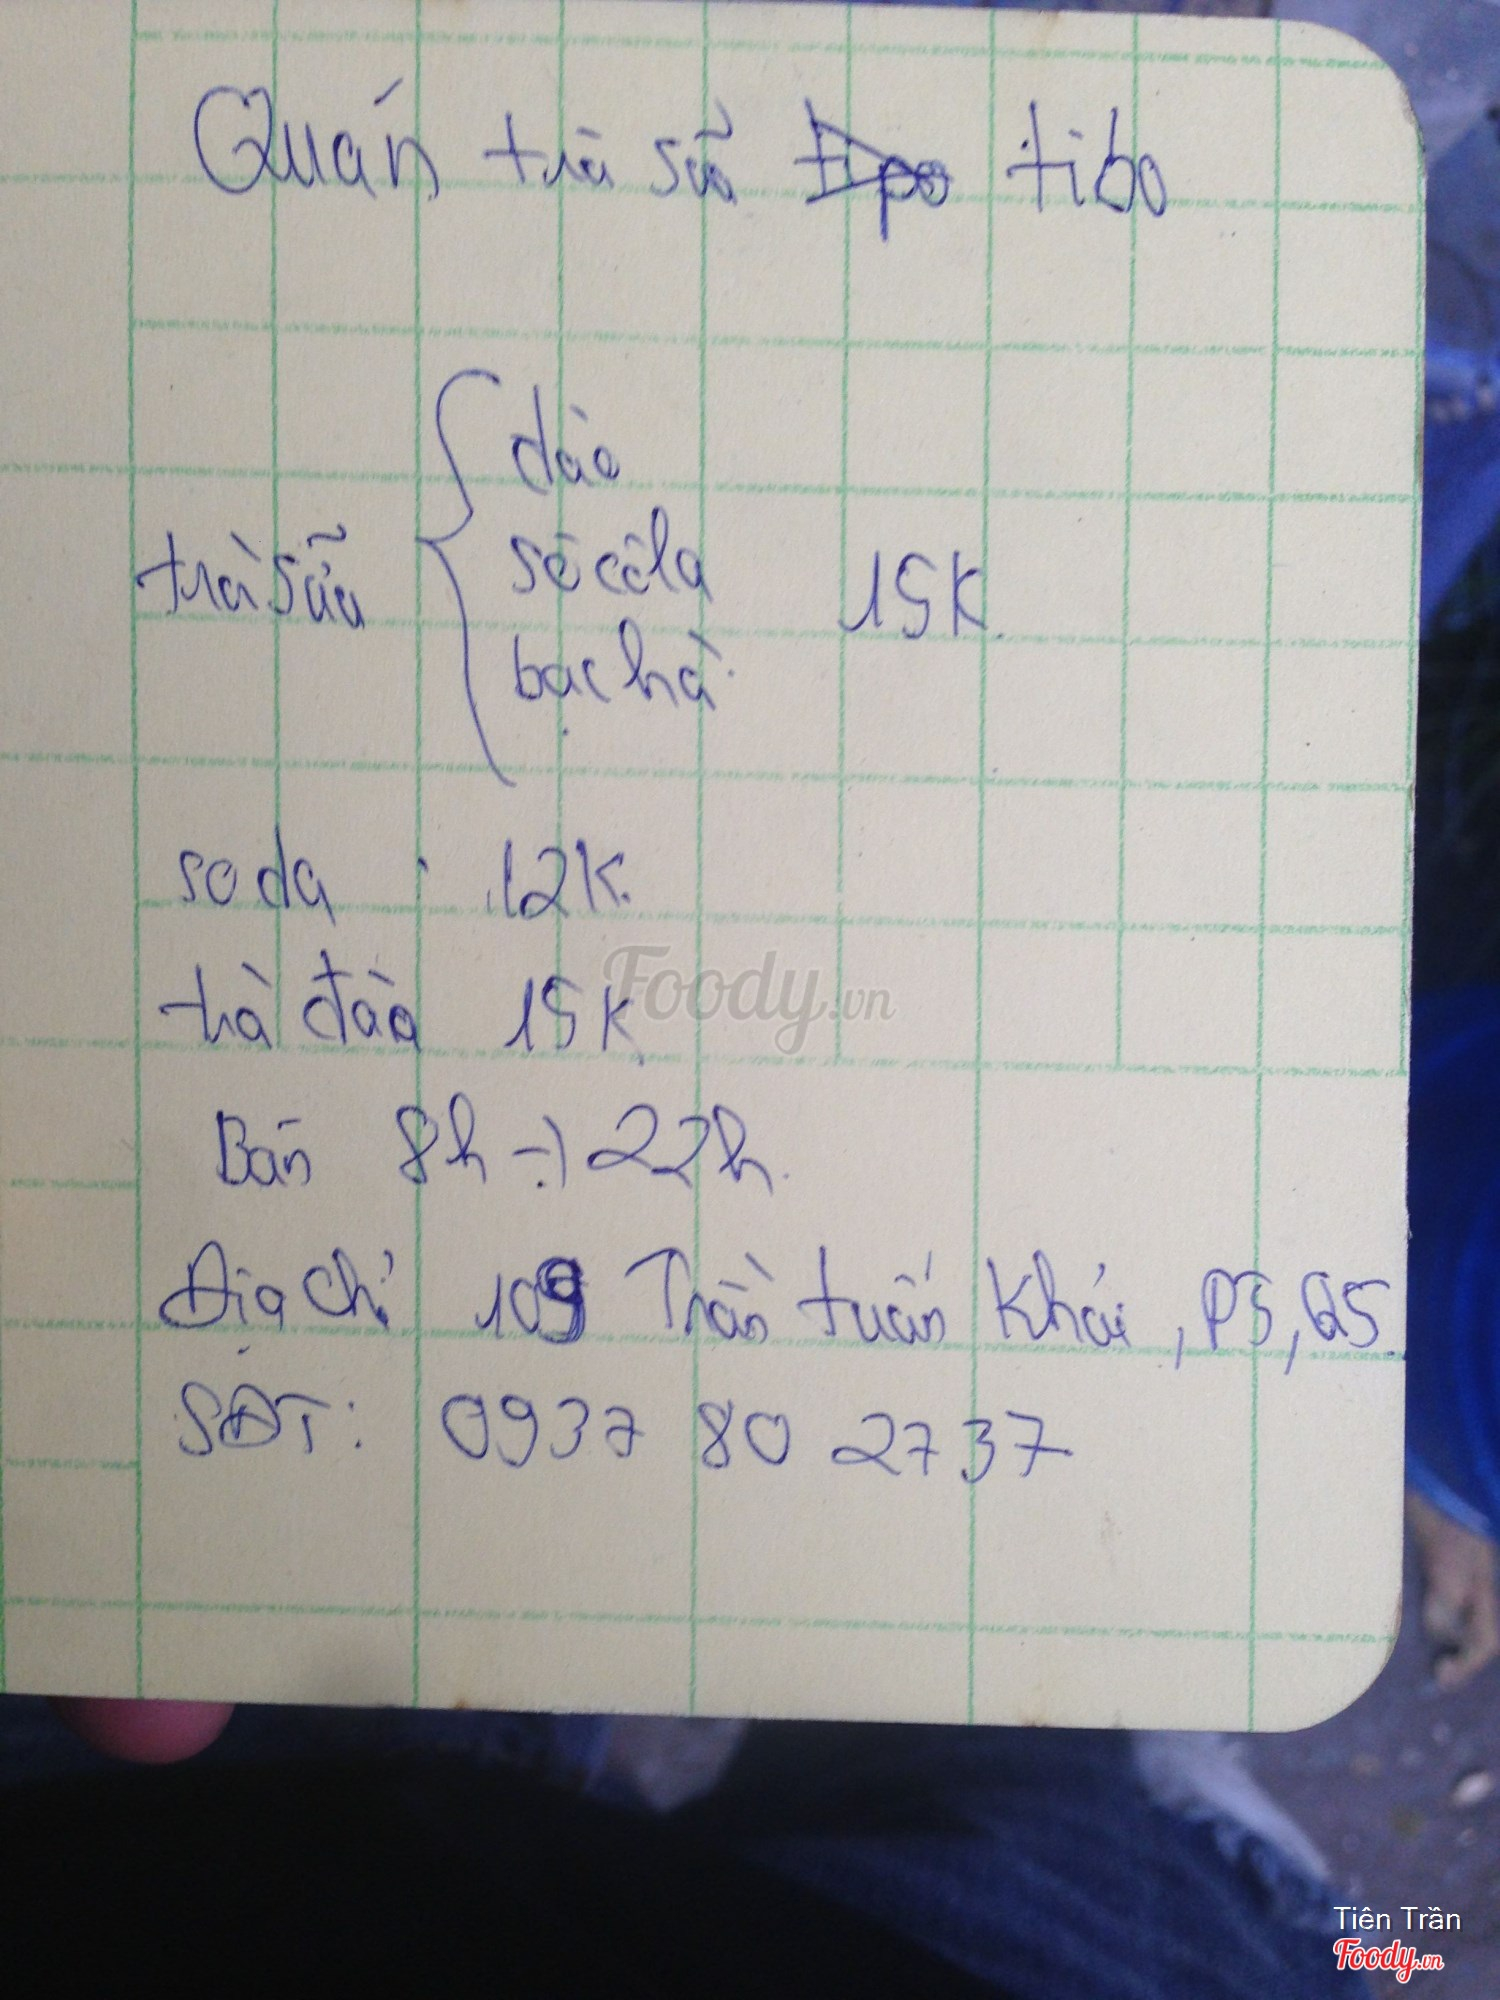 Quán trà sữa tipo tibo
đào
sôcôla
trà sữa 15K
bạc hà
soda : 12K.
trà đào 15K
Foody.vn
Bán 8h -> 22h.
Địa chỉ 109 Trần tuấn Khải, P5, Q5.
SĐT: 0937 80 2737
Tiên Trần
Foody.vn